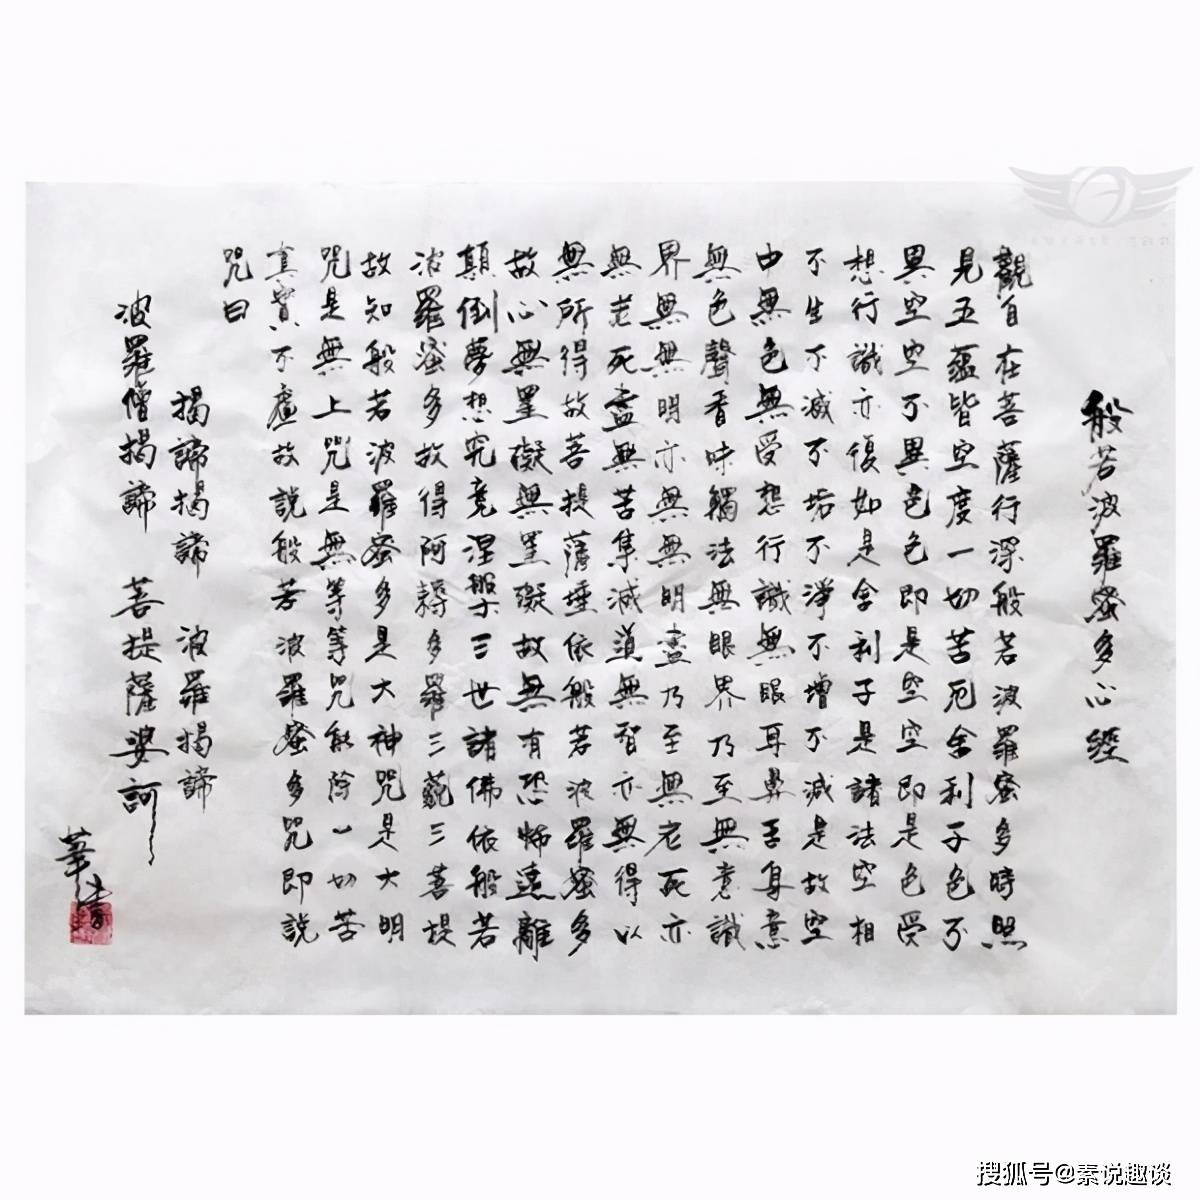 般若波羅蜜多心經
觀自在菩薩行深般若波羅蜜多時照
見五蘊皆空度一切苦厄舍利子色不
異空空不異色色即是空空即是色受
想行識亦復如是舍利子是諸法空相
不生不滅不垢不淨不增不減是故空
中無色無受想行識無眼耳鼻舌身意
無色聲香味觸法無眼界乃至無意識
界無無明亦無無明盡乃至無老死亦
無老死盡無苦集滅道無智亦無得以
無所得故菩提薩埵依般若波羅蜜多
故心無罣礙無罣礙故無有恐怖遠離
顛倒夢想究竟涅槃三世諸佛依般若
波羅蜜多故得阿耨多羅三藐三菩提
故知般若波羅蜜多是大神咒是大明
咒是無上咒是無等等咒能除一切苦
真實不虛故說般若波羅蜜多咒即說
咒曰
揭諦揭諦 波羅揭諦
波羅僧揭諦 菩提薩婆訶
搜狐号@秦说趣谈